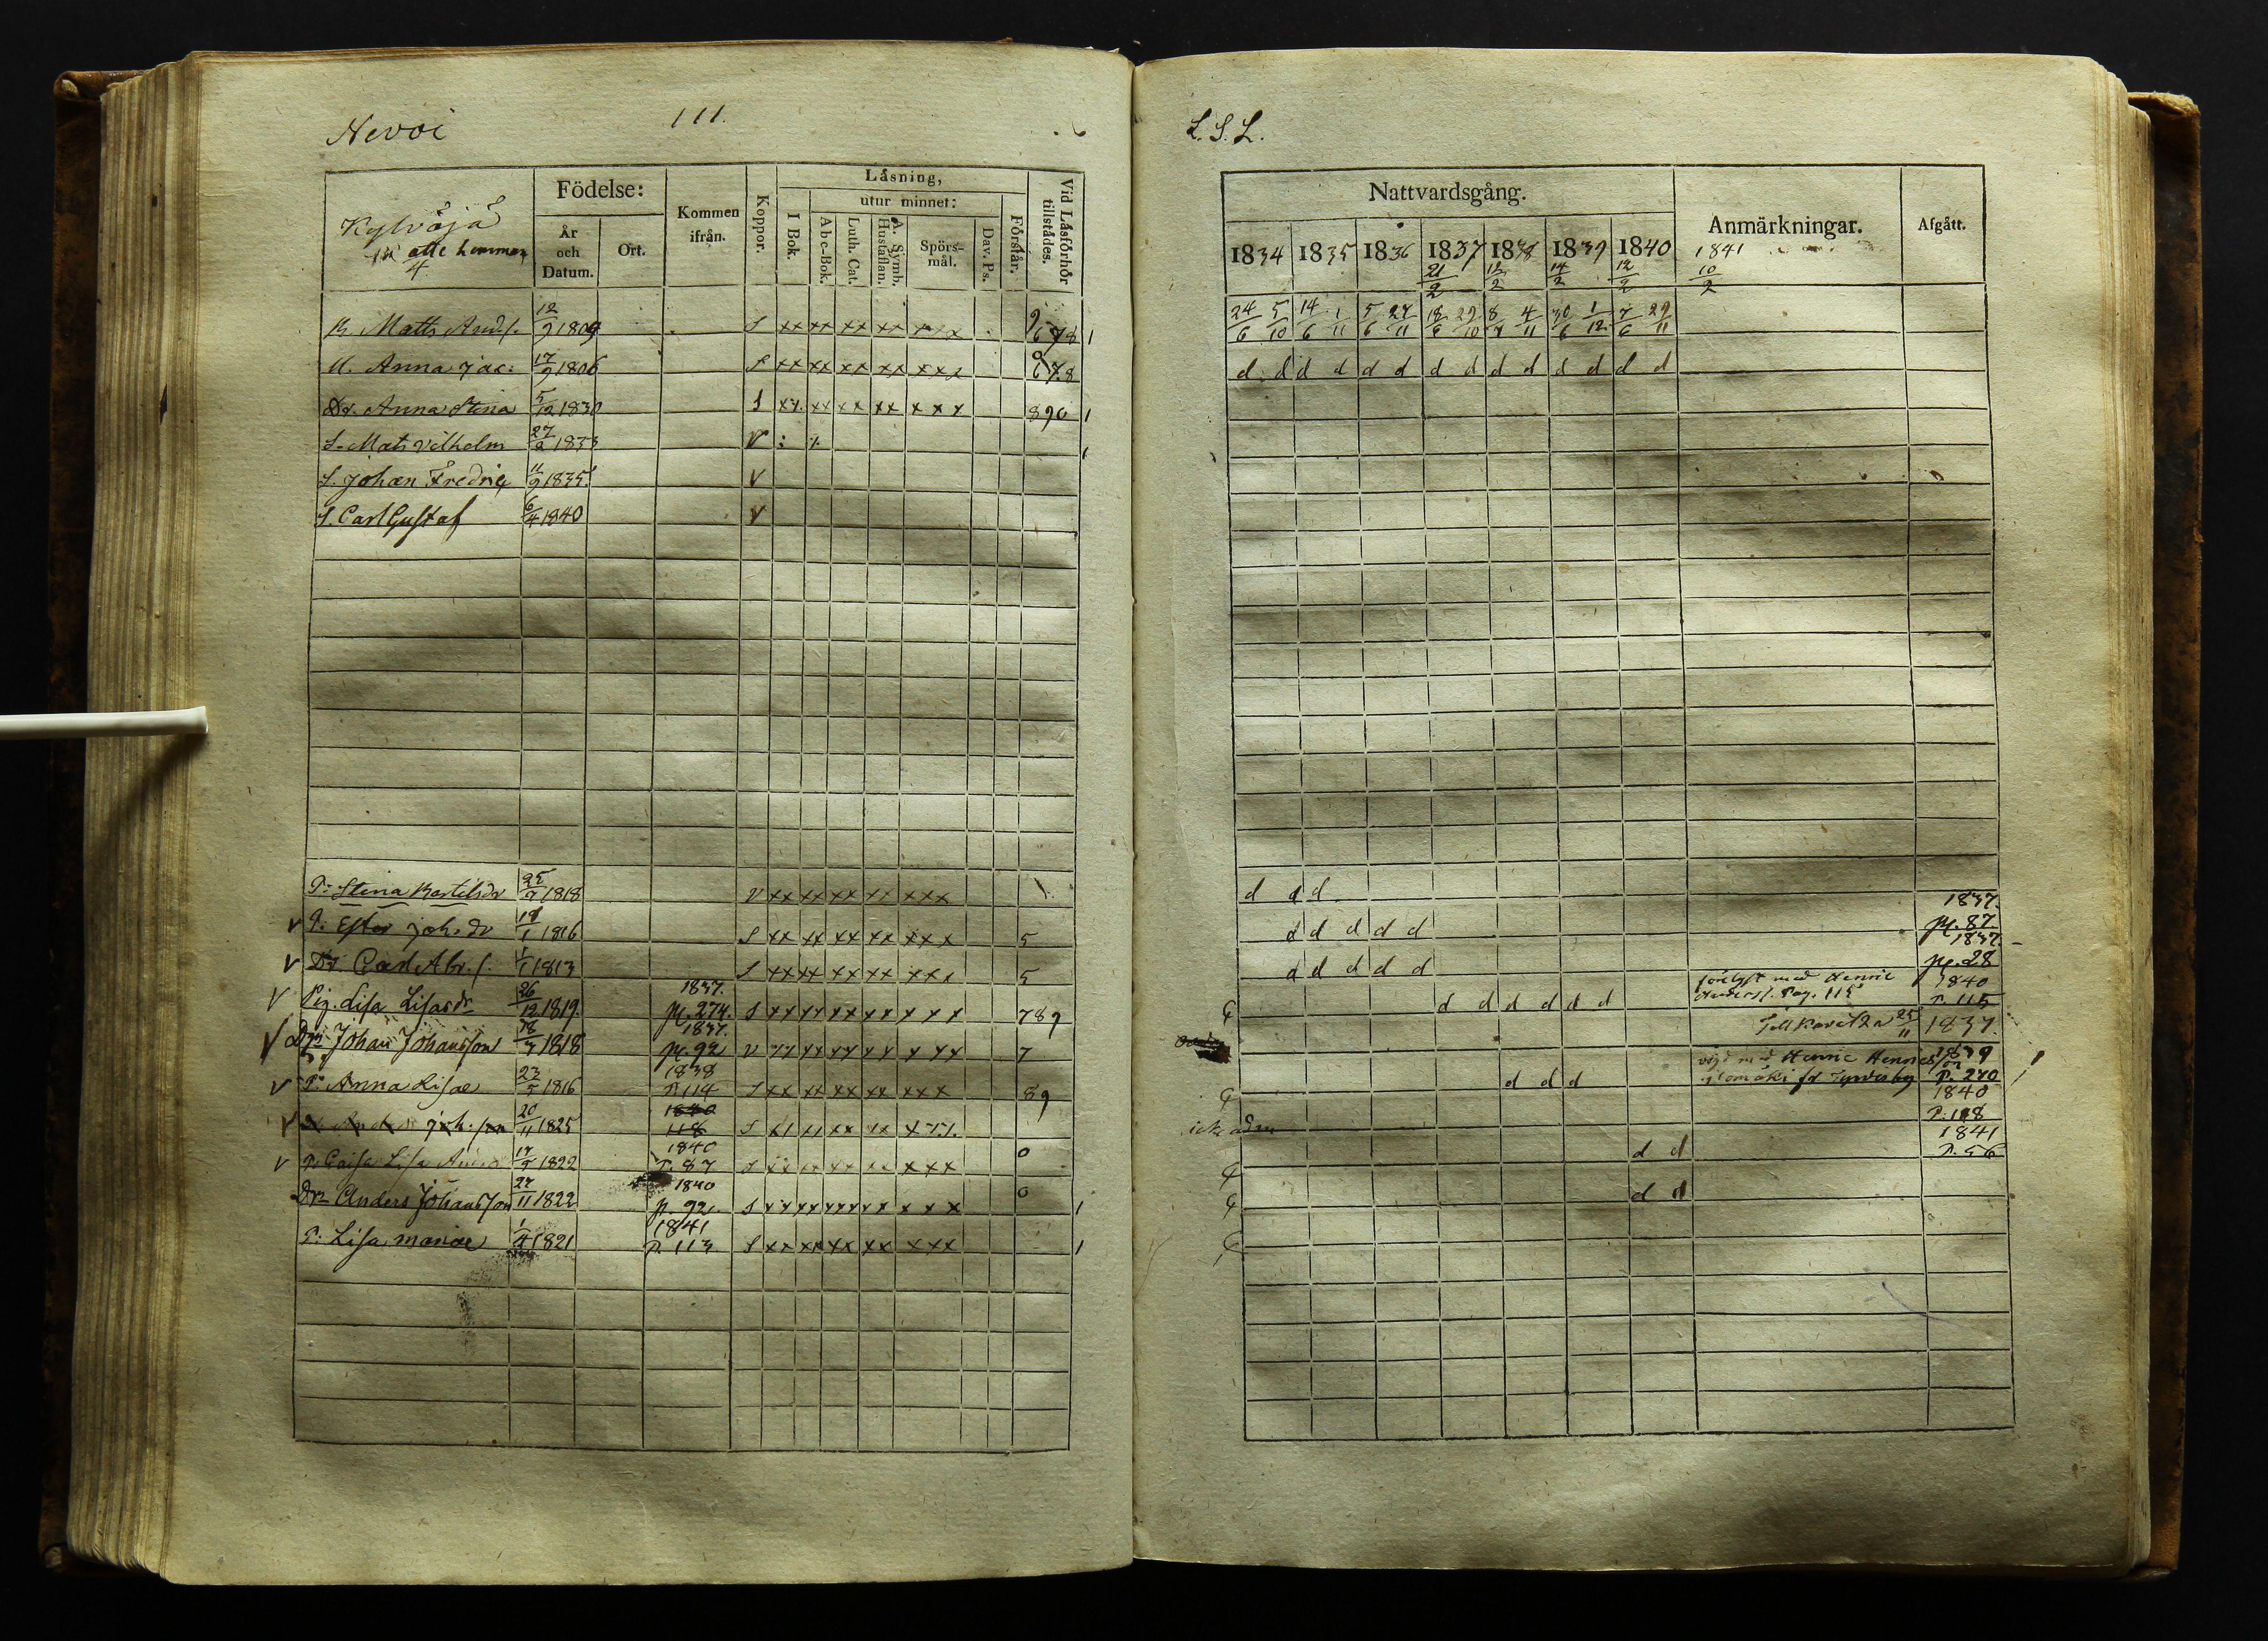 Nevoi
111.
Kylvöjä
alte hemman
4
Födelse:
År
och
Datum.
Ort.
Kommen
ifrån.
Koppor.
Läsning,
I Bok.
utur minnet:
Abc-Bok.
Luth. Cat.
A. Symb.
Hustaflan.
Spörs-
mål.
Dav. Ps.
Förstår.
Vid Läsförhör
tillstädes.
B. Matts And.s. 12/9 1809 S xx xx xx xx xxx 9 678 1
U. Anna Jac: 17/9 1806 S xx xx xx xx xxx 9 678
Dr. Anna Stina 5/12 1830 S xx xx xx xx xxx 890 1
S. Mats Vilhelm 27/2 1833 V 1
S. Johan Fredric 11/9 1835 V
S. Carl Gustaf 6/4 1840 V
P: Stina Bertilsdr 25/7 1818 V xx xx xx xx xxx
V P: Ester Joh. dr 1/1 1816 S xx xx xx xx xxx 5
V Dr. Carl Abr. s. 1/1 1813 S xx xx xx xx xxx 5
V Pig. Lisa Lisasdr 26/12 1819. 1837. pg. 274. S xx xx xx xx xxx 789
V Dr Johan Johansson 18/7 1818 1837. pg. 92 V xx xx xx xx xxx 7
V P: Anna Lisae 23/5 1816 1838 P. 114 S xx xx xx xx xxx 89
V Joh. son 20/11 1825 1840 118 S
V P: Caisa Lisa 17/5 1822 1840 P. 87 S xxx 0
Dr Anders Johansson 27/11 1822 1840 p. 92. S xx xx xx xx xxx 0 1
P: Lisa mariae 1/4 1821 1841 P. 113 S xx xx xx xx xxx 1
L. S. L.
Nattvardsgång.
Anmärkningar.
Afgått.
1834 1835 1836 1837 1838 1839 1840 1841
21/2 12/2 14/2 12/2 10/2
24/6 5/10 14/6 1/11 5/6 27/11 18/6 29/10 8/7 4/11 30/6 1/12 7/6 29/11
d d d d d d d d d d d d d d
d d d
1837.
d d d d d pg. 87.
1837.
d d d d d pg. 28
d d d d d d förlyst med Henric
Anders s. Pag. 115 1840
P. 115
Till 25/11 1837.
d d d med Henric Henricsson 1839
P. 270
icke adm 1840
P. 118
d d 1841
P. 56
d d